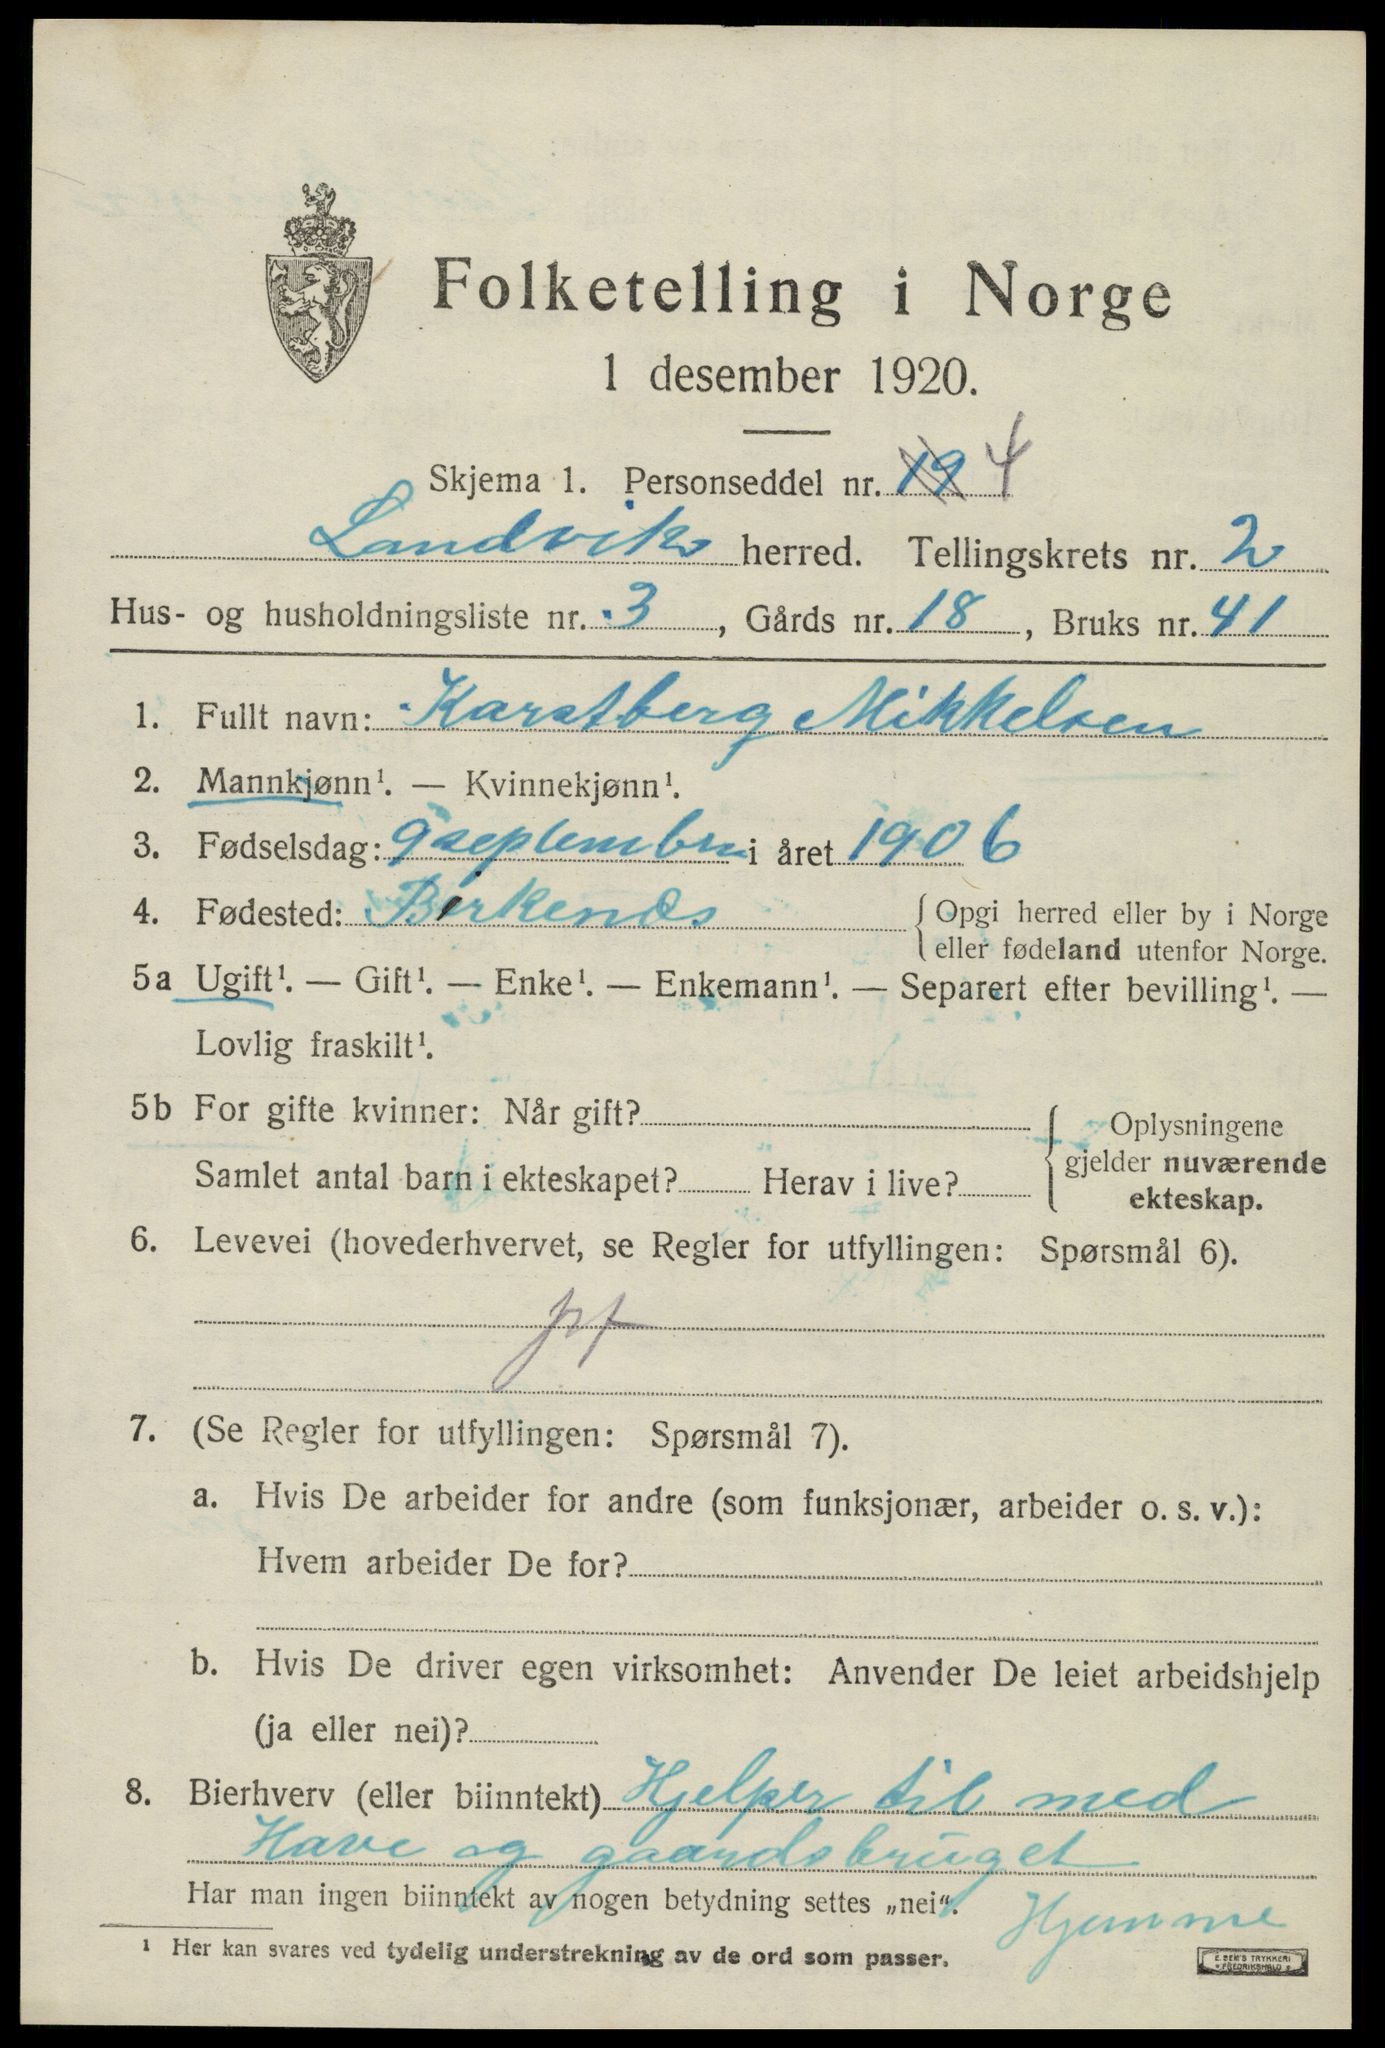 Folketelling i Norge
1 desember 1920.
Skjema 1. Personseddel nr. 19 4
Landvik herred. Tellingskrets nr. 2
Hus- og husholdningsliste nr. 3, Gårds nr. 18, Bruks nr. 41
1. Fullt navn: Karstberg Mikkelsen
2. Mannkjønn¹. — Kvinnekjønn¹.
3. Fødselsdag: 9 september i året 1906
4. Fødested: Birkenes {Opgi herred eller by i Norge
eller fødeland utenfor Norge.
5a Ugift¹. — Gift¹. — Enke¹. — Enkemann¹. — Separert efter bevilling¹. —
Lovlig fraskilt¹.
5b For gifte kvinner: Når gift?
Samlet antal barn i ekteskapet? Herav i live?
{Oplysningene
gjelder nuværende
ekteskap.
6. Levevei (hovederhvervet, se Regler for utfyllingen: Spørsmål 6).
7. (Se Regler for utfyllingen: Spørsmål 7).
a. Hvis De arbeider for andre (som funksjonær, arbeider o. s. v.):
Hvem arbeider De for?
b. Hvis De driver egen virksomhet: Anvender De leiet arbeidshjelp
(ja eller nei)?
8. Bierhverv (eller biinntekt) Hjelper til med
Have og gaardsbruget
Har man ingen biinntekt av nogen betydning settes „nei“.
Hjemme
¹ Her kan svares ved tydelig understrekning av de ord som passer.
E. SEM'S TRYKKERI
FREDRIKSHALD